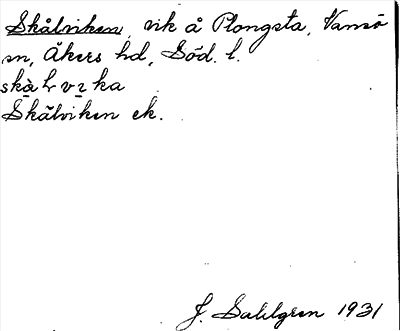 Skålviken, vik å Plongsta, Vansö
sn, Åkers hd, Söd. l.
skàl vı ka
Skålviken ek.
J. Sahlgren 1931